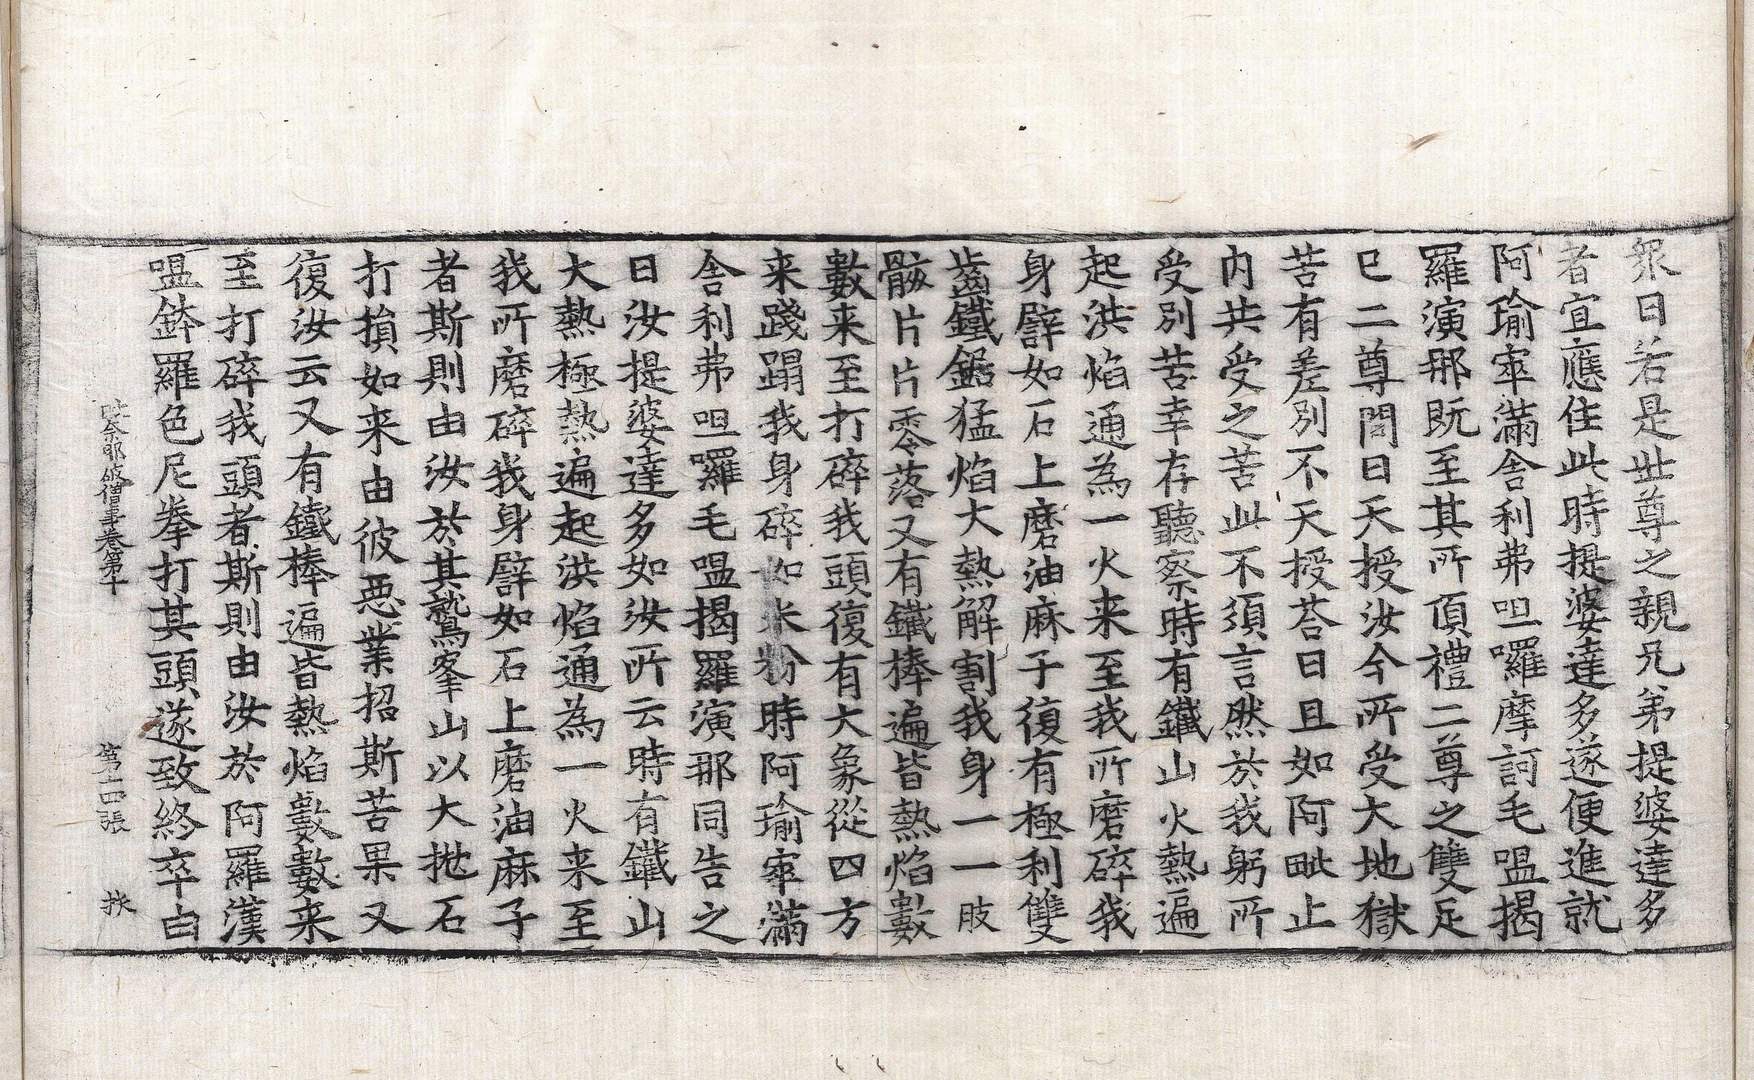 衆曰若是世尊之親兄弟提婆達多
者宜應住此時提婆達多遂便進就
阿瑜率滿舎利弗呾囉摩訶毛嗢揭
羅演那既至其所頂禮二尊之雙足
已二尊問曰天授汝今所受大地獄
苦有差別不天授荅曰且如阿毗止
内共受之苦此不須言然於我躬所
受別苦幸存聽察時有鐵山火熱遍
起洪焰通為一火来至我所磨碎我
身譬如石上磨油麻子復有極利雙
齒鐵鋸猛焰大熱解割我身一一肢
骸片片零落又有鐵棒遍皆熱焰數
數来至打碎我頭復有大象從四方
来踐蹋我身碎如米粉時阿瑜率滿
舎利弗呾囉毛嗢揭羅演那同告之
曰汝提婆達多如汝所云時有鐵山
大熱極熱遍起洪焰通為一火来至
我所磨碎我身譬如石上磨油麻子
者斯則由汝於其鷲峯山以大拋石
打損如来由彼惡業招斯苦果又
復汝云又有鐵棒遍皆熱焰數數来
至打碎我頭者斯則由汝於阿羅漢
嗢鉢羅色尼拳打其頭遂致終卒白
毗奈耶破僧事卷第十 第十四張 挍